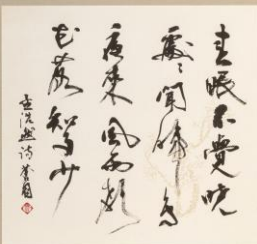 春眠不覺曉
處々聞啼鳥
夜來風雨聲
花落知多少
孟浩然詩